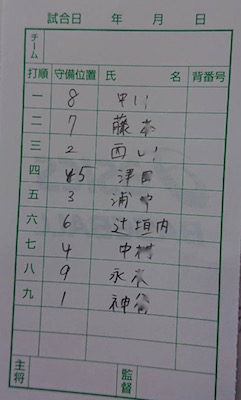 試合日 年 月 日
チーム
打順 守備位置 氏 名 背番号
一 8 早川
二 7 藤本
三 2 西山
四 5 津田
五 3 浦中
六 6 辻垣内
七 4 中村
八 9 永木
九 1 神谷
主将 監督